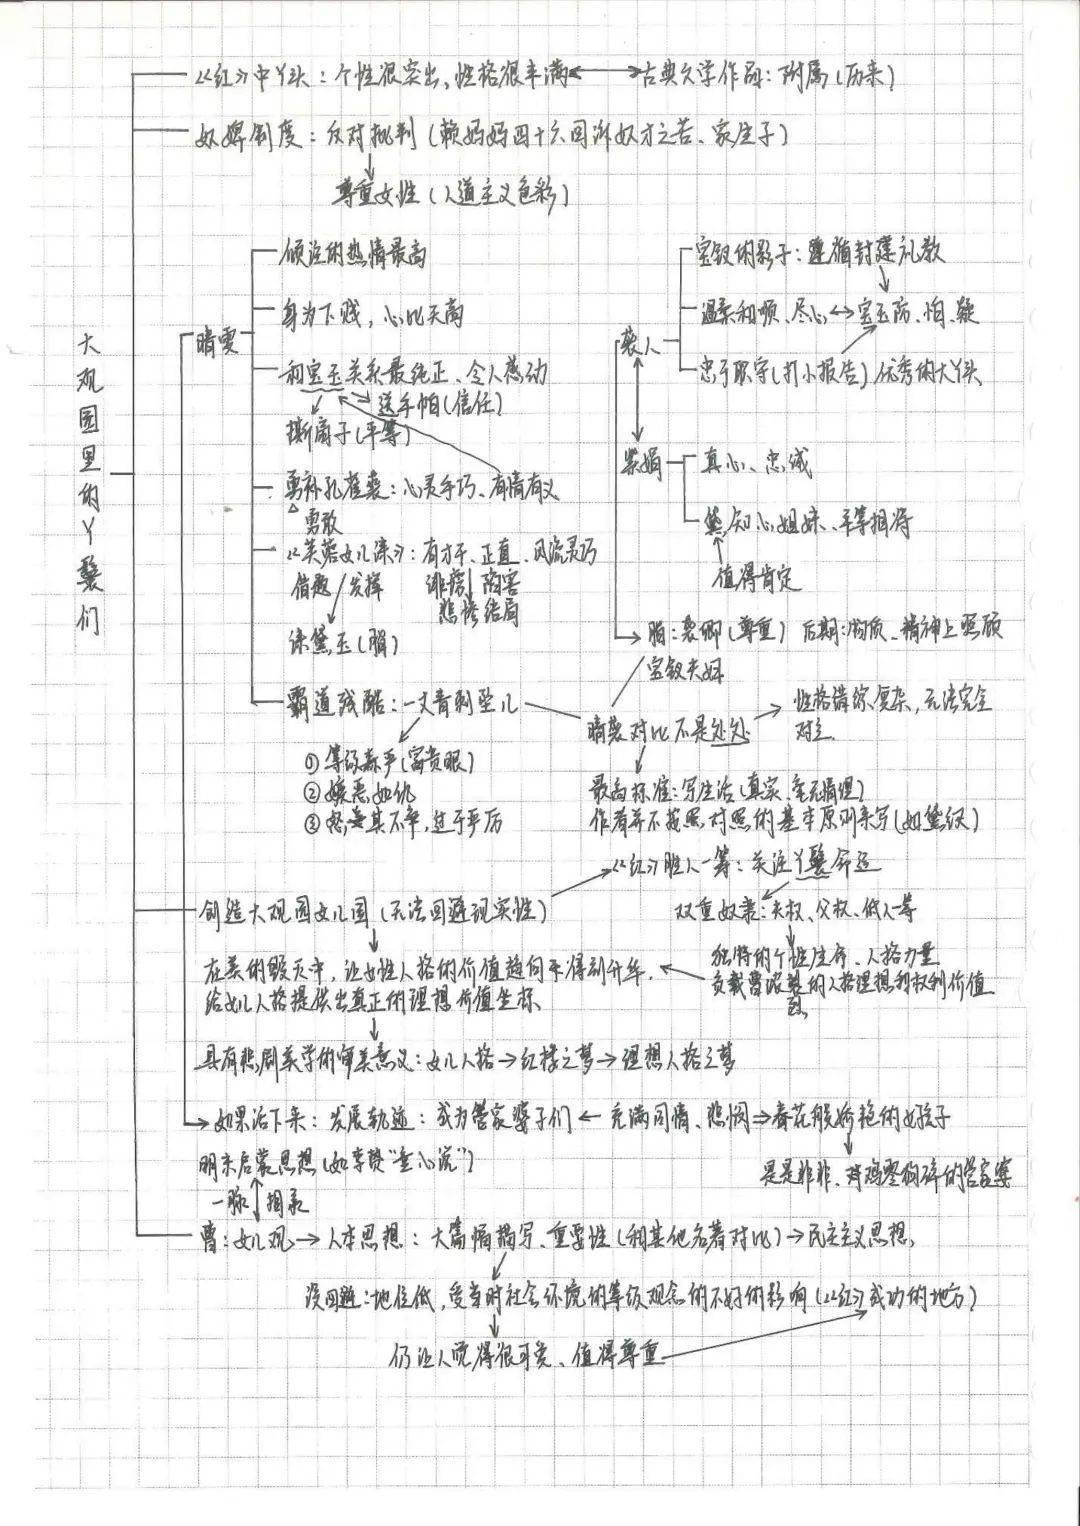 大观园里的丫鬟们
《红》中丫头：个性很突出，性格很丰满 ↔ 古典文学作品：附属（历来）
奴婢制度：反对批判（赖妈妈四十六回诉奴才之苦、家生子）
尊重女性（人道主义色彩）
晴雯
倾注的热情最高
身为下贱，心比天高
和宝玉关系最纯正、令人感动
送手帕（信任）
撕扇子（平等）
勇补孔雀裘：心灵手巧、有情有义
勇敢
《芙蓉女儿诔》：有才干、正直、风流灵巧
借题发挥
诽谤 陷害
悲惨结局
诔黛玉（脂）
霸道残酷：一丈青刺坠儿
① 等级森严（富贵眼）
② 嫉恶如仇
③ 怒其不争，过于严厉
袭人
宝钗的影子：遵循封建礼教
温柔和顺、尽心 ↔ 宝玉防、怕、疑
忠于职守（打小报告）优秀的大丫头
紫娟
真心、忠诚
黛，知心姐妹、平等相待
值得肯定
脂：袭卿（尊重） 后期：物质、精神上照顾
宝钗夫妇
晴袭对比不是处处
性格错综复杂，无法完全
对立
最高标准：写生活（真实、
作者并不按照对照的基本原则来写（如黛钗）
《红》胜人一筹：关注丫鬟命运
双重奴隶：夫权、父权、低人一等
独特的个性生命、人格力量
负载曹
的人格理想和权利价值
创造大观园女儿国（无法回避现实性）
在美的毁灭中，让女性人格的价值趋向
得到升华，
给女儿人格提供出真正的理想价值坐标
具有悲剧美学的审美意义：女儿人格→红楼之梦→理想人格之梦
如果活下来：发展轨迹：成为管家婆子们 ← 充满同情、悲悯 ⇒ 春花般娇艳的女孩子
是是非非、鸡零狗碎的管家婆
明末启蒙思想（如李贽“童心说”）
一脉相承
曹：女儿观→人本思想：大篇幅描写、重要性（和其他名著对比）→民主主义思想
没回避：地位低，受当时社会环境的等级观念的不好的影响（《红》成功的地方）
仍让人觉得很可爱、值得尊重